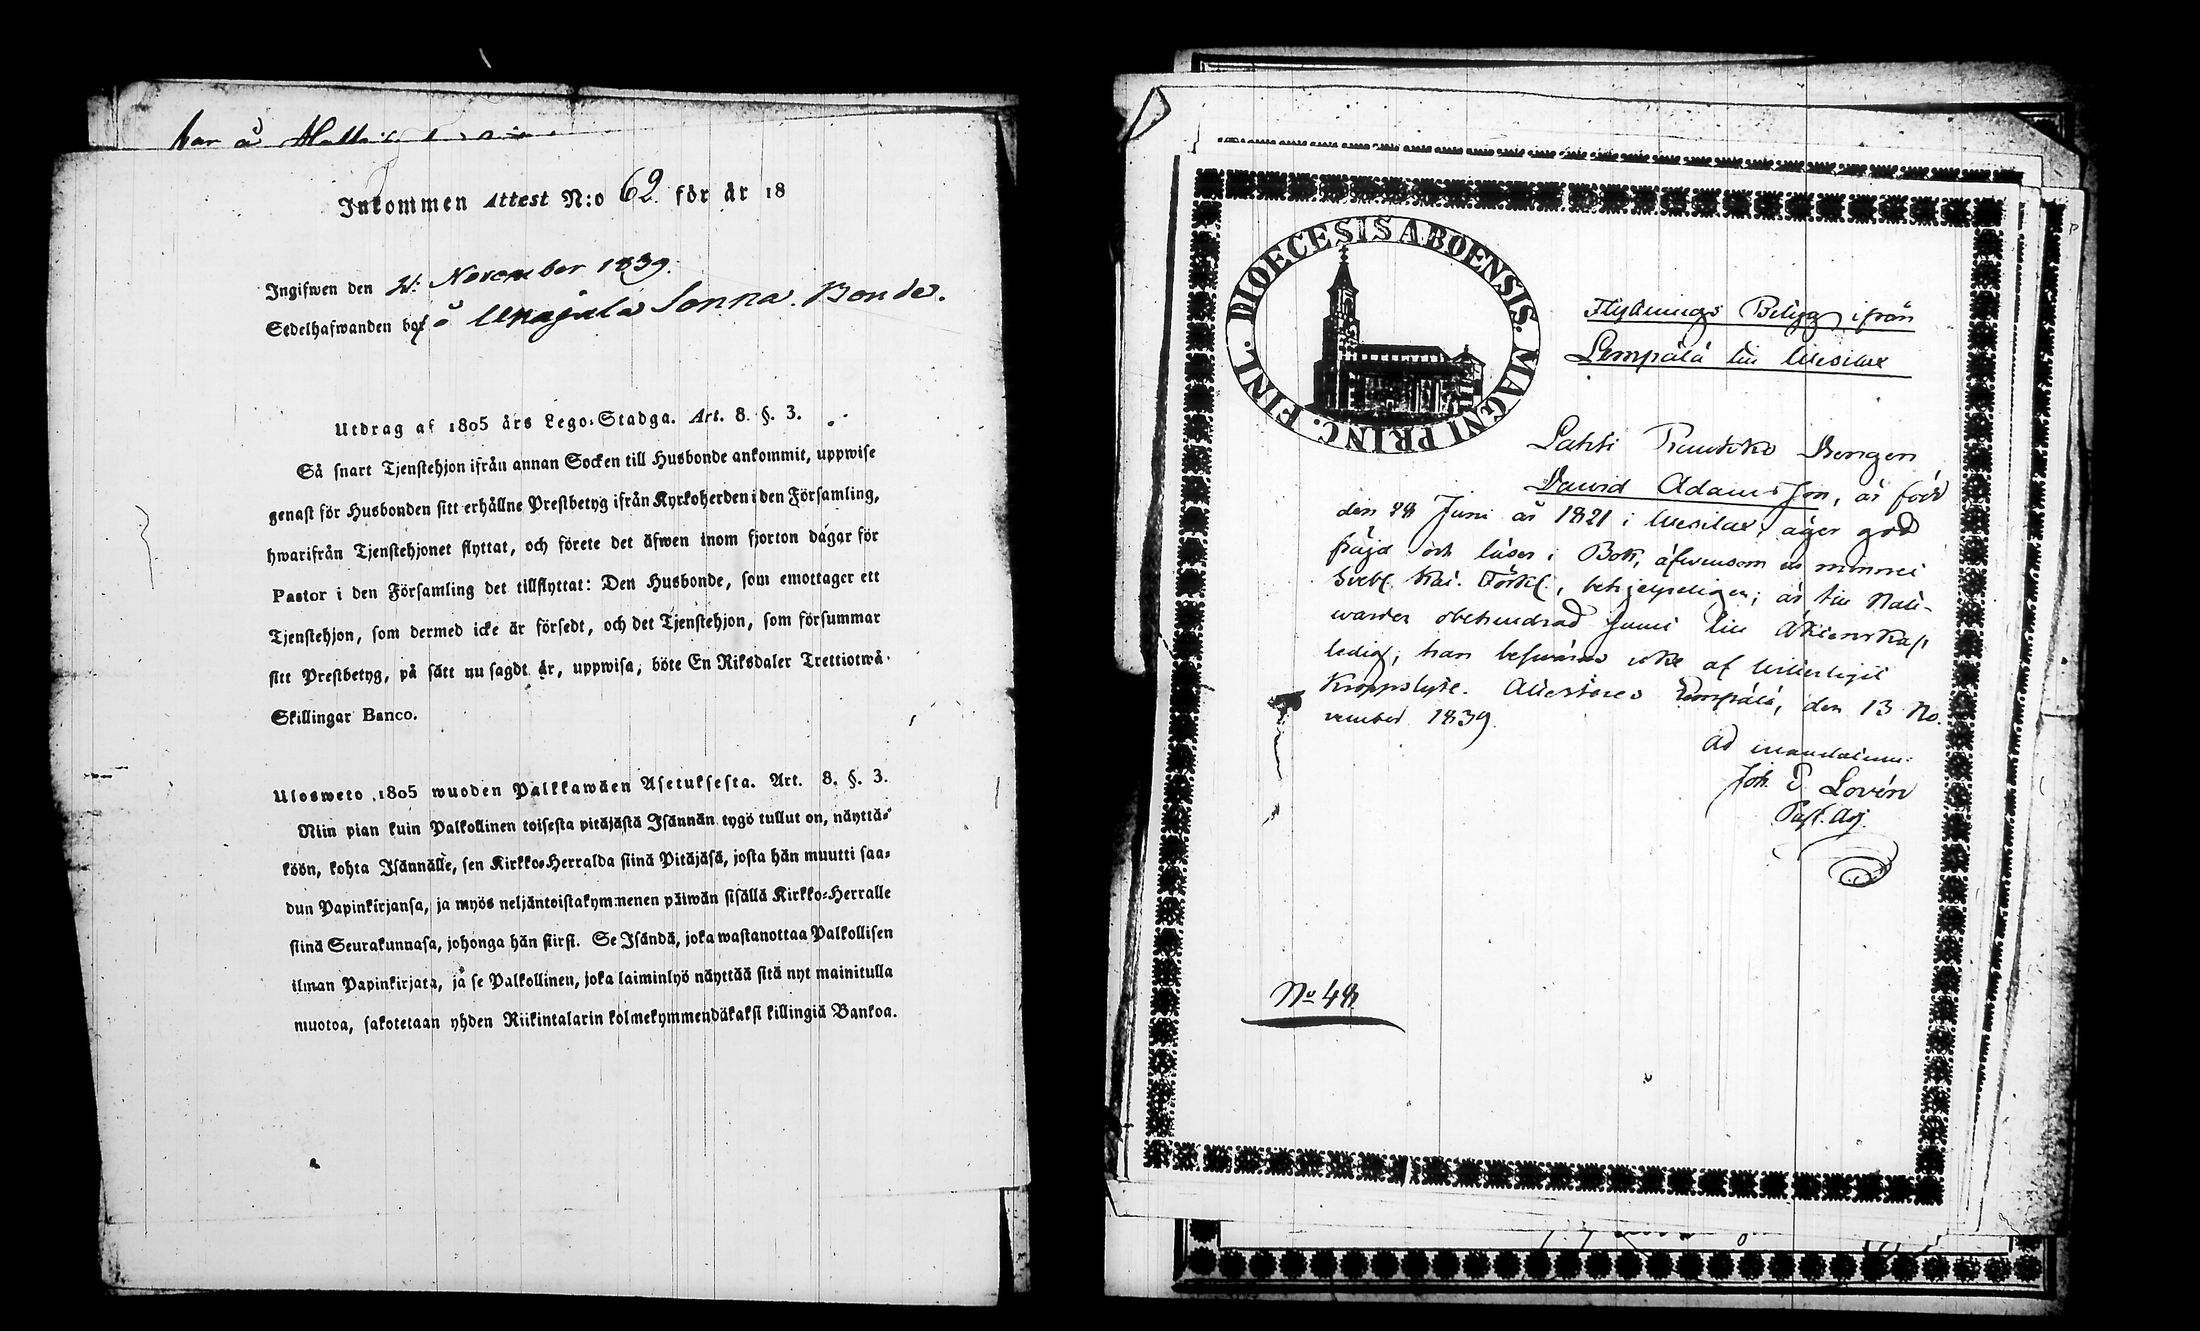 Inkommen Attest N:o 62 för år 18
Ingifwen den November 1839.
Sedelhafwanden
Bonde.
Utdrag af 1805 års Lego-Stadga. Art. 8. §. 3.
Så snart Tjenstehjon ifrån annan Socken till Husbonde ankommit, uppwise
genast för Husbonden sitt erhållne Prestbetyg ifrån Kyrkoherden i den Församling,
hwarifrån Tjenstehjonet flyttat, och förete det äfwen inom fjorton dagar för
Pastor i den Församling det tillflyttat: Den Husbonde, som emottager ett
Tjenstehjon, som dermed icke är försedt, och det Tjenstehjon, som försummar
sitt Prestbetyg, på sätt nu sagdt är, uppwisa, böte En Riksdaler Trettiotwå
Skillingar Banco.
Ulosweto 1805 wuoden Palkkawäen Asetuksesta. Art. 8. §. 3.
Niin pian kuin Palkollinen toisesta pitäjästä Isännän tygö tullut on, näyttä-
köön, kohta Isännälle, sen Kirkko-Herralda siinä Pitäjäsä, josta hän muutti saa-
dun Papinkirjansa, ja myös neljäntoistakymmenen päiwän sisällä Kirkko-Herralle
siinä Seurakunnasa, johonga hän siirsi. Se Isändä, joka wastanottaa Palkollisen
ilman Papinkirjata, ja se Palkollinen, joka laiminlyö näyttää sitä nyt mainitulla
muotoa, sakotetaan yhden Riikintalarin kolmekymmendäkaksi killingiä Bankoa.
DIOECESIS ABOENSIS. MAGNI PRINC. FINL.
Flyttnings Betyg ifrån
Lempälä till Wesilax
Lahti Drengen
David Adamsson, är född
den 28 Juni år 1821 i Wesilax, äger god
fräjd och läser i Bok, äfwensom ur minnet
Svebl. Kat. Förkl., behjelpeligen; är till Natt-
warden obehindrad samt till Äktenskap
ledig; han beswäras icke af
Kroppslyte. Attesteras Lempälä, den 13 No-
vember 1839.
Ad mandatum:
Joh. E. Lovén
Past. Adj.
No 48